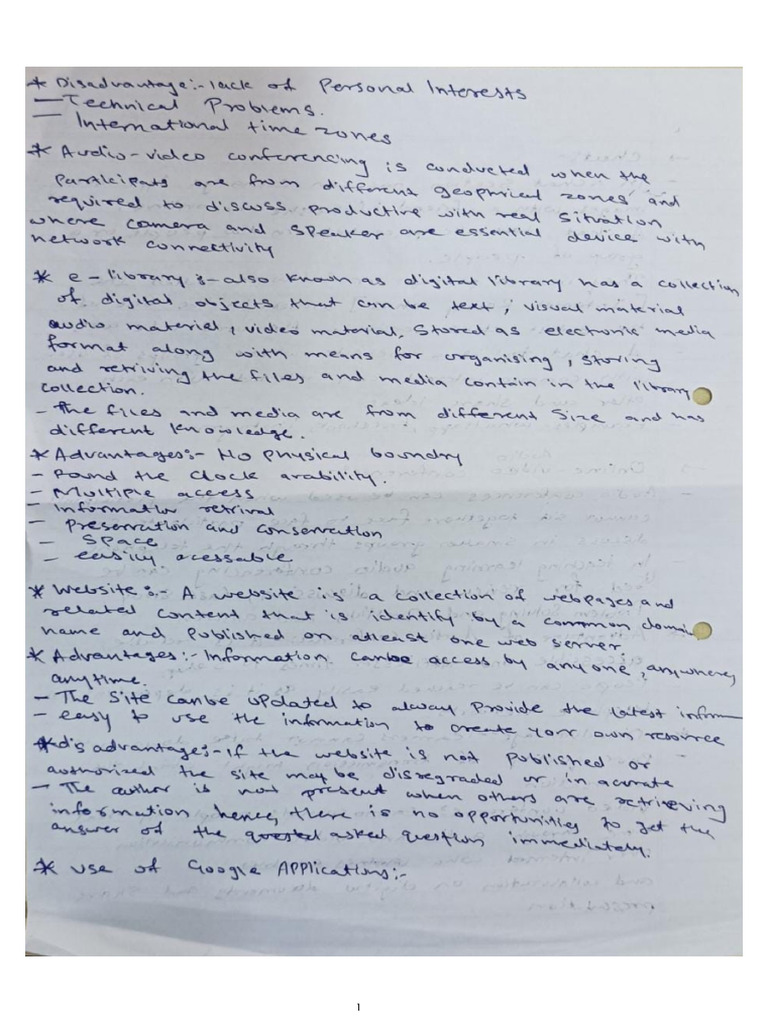 * Disadvantage:- lack of Personal Interests
- Technical Problems.
- International time zones
* Audio-video conferencing is conducted when the
participats are from different geophical zones and
required to discuss productive with real situation
where camera and speaker are essential device with
network connectivity
* e-library :- also known as digital library has a collection
of digital objects that can be text, visual material
audio material, video material, stored as electronic media
format along with means for organising, storing
and retriving the files and media contain in the library
collection.
- The files and media are from different size and has
different knowledge.
* Advantages:- No physical boundry
- Round the clock arability.
- Multiple access
- Information retrival
- Preservation and conservation
- Space
- easily acessable
* Website:- A website is a collection of webpages and
related content that is identify by a common domain
name and published on atleast one web server.
* Advantages:- Information canbe access by anyone, anywhere,
anytime.
- The site canbe updated to always provide the latest inform
- easy to use the information to create your own resource
* d's advantage:- If the website is not published or
authorized the site may be disregraded or in acurate
- The author is not present when others are retrieving
information hence, there is no opportunities to get the
answer of the asked question immediately.
* use of Google Applications:-
1